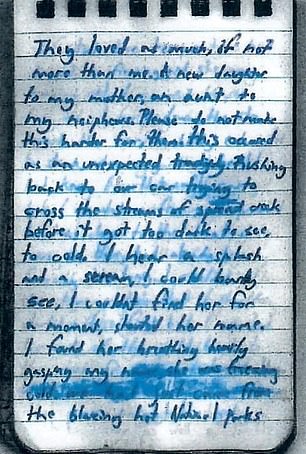 They loved as much, if not
more than me. A new daughter
to my mother, an aunt to
my neiphews. Please do not make
this harder for them. this occured
as an unexpected tradgidy. Rushing
back to our car trying to
cross the streams of spread creek
before it got too dark to see,
to cold. I hear a splash
and a scream, I could barely
see, I couldnt find her for
a moment, shouted her name.
I found her breathing heavily
gasping my she was freezing
cold from
the blazing hot National Parks